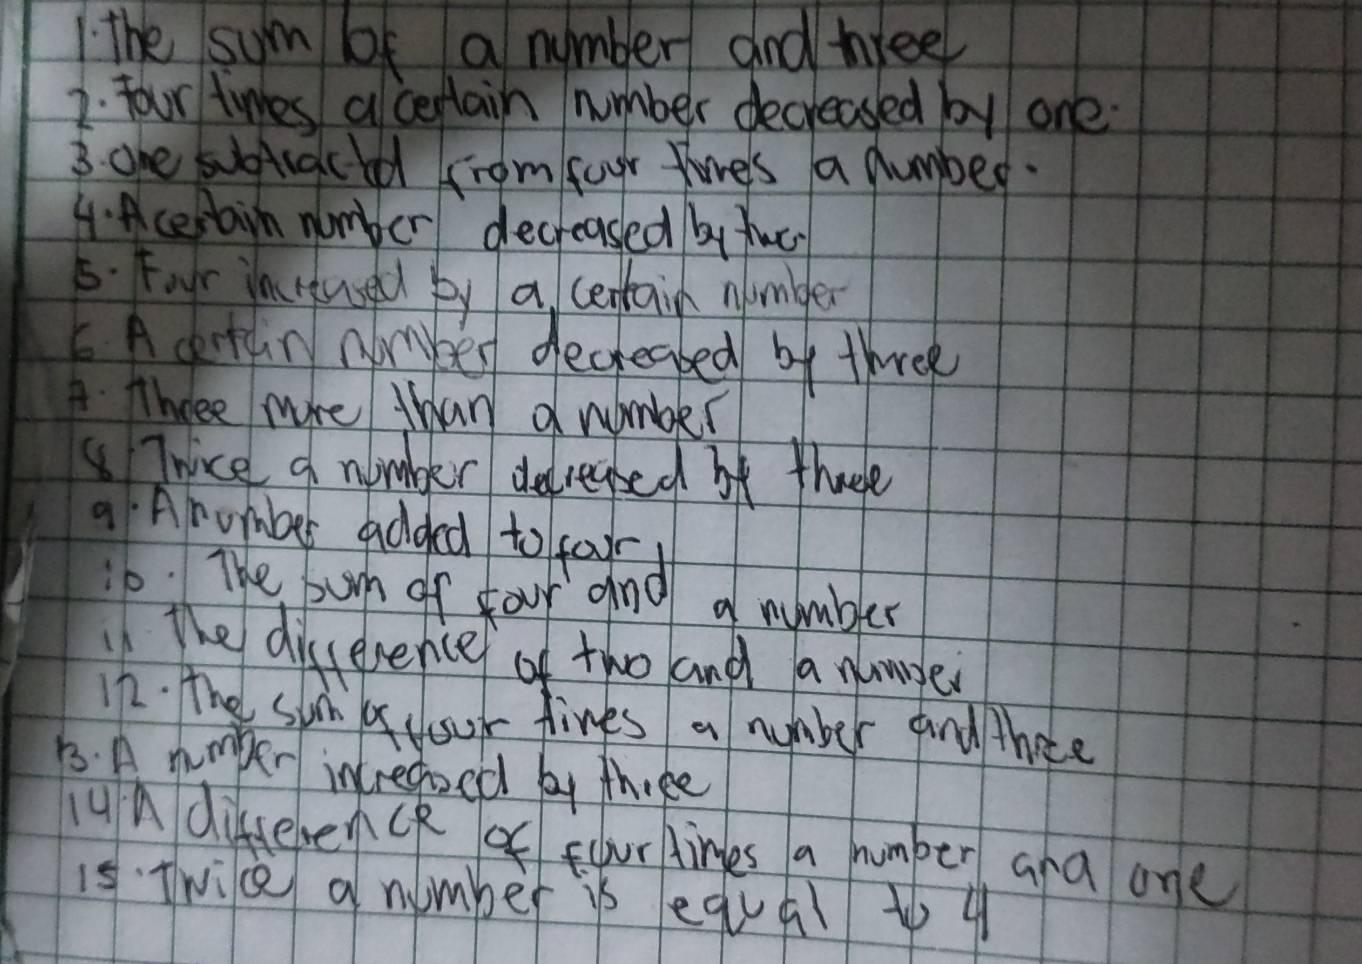 1. The sum of a number and three
2. Four times a certain number decreased by one.
3. One subtracted from four times a number.
4. A certain number decreased by two.
5. Four increased by a certain number
6. A certain number decreased by three
7. Three more than a number
8. Twice a number decreased by three
9. A number added to four
10. The sum of four and a number
11. The difference of two and a number
12. The sum of four times a number and three
13. A number increased by three
14. A difference of four times a number and one
15. Twice a number is equal to 4